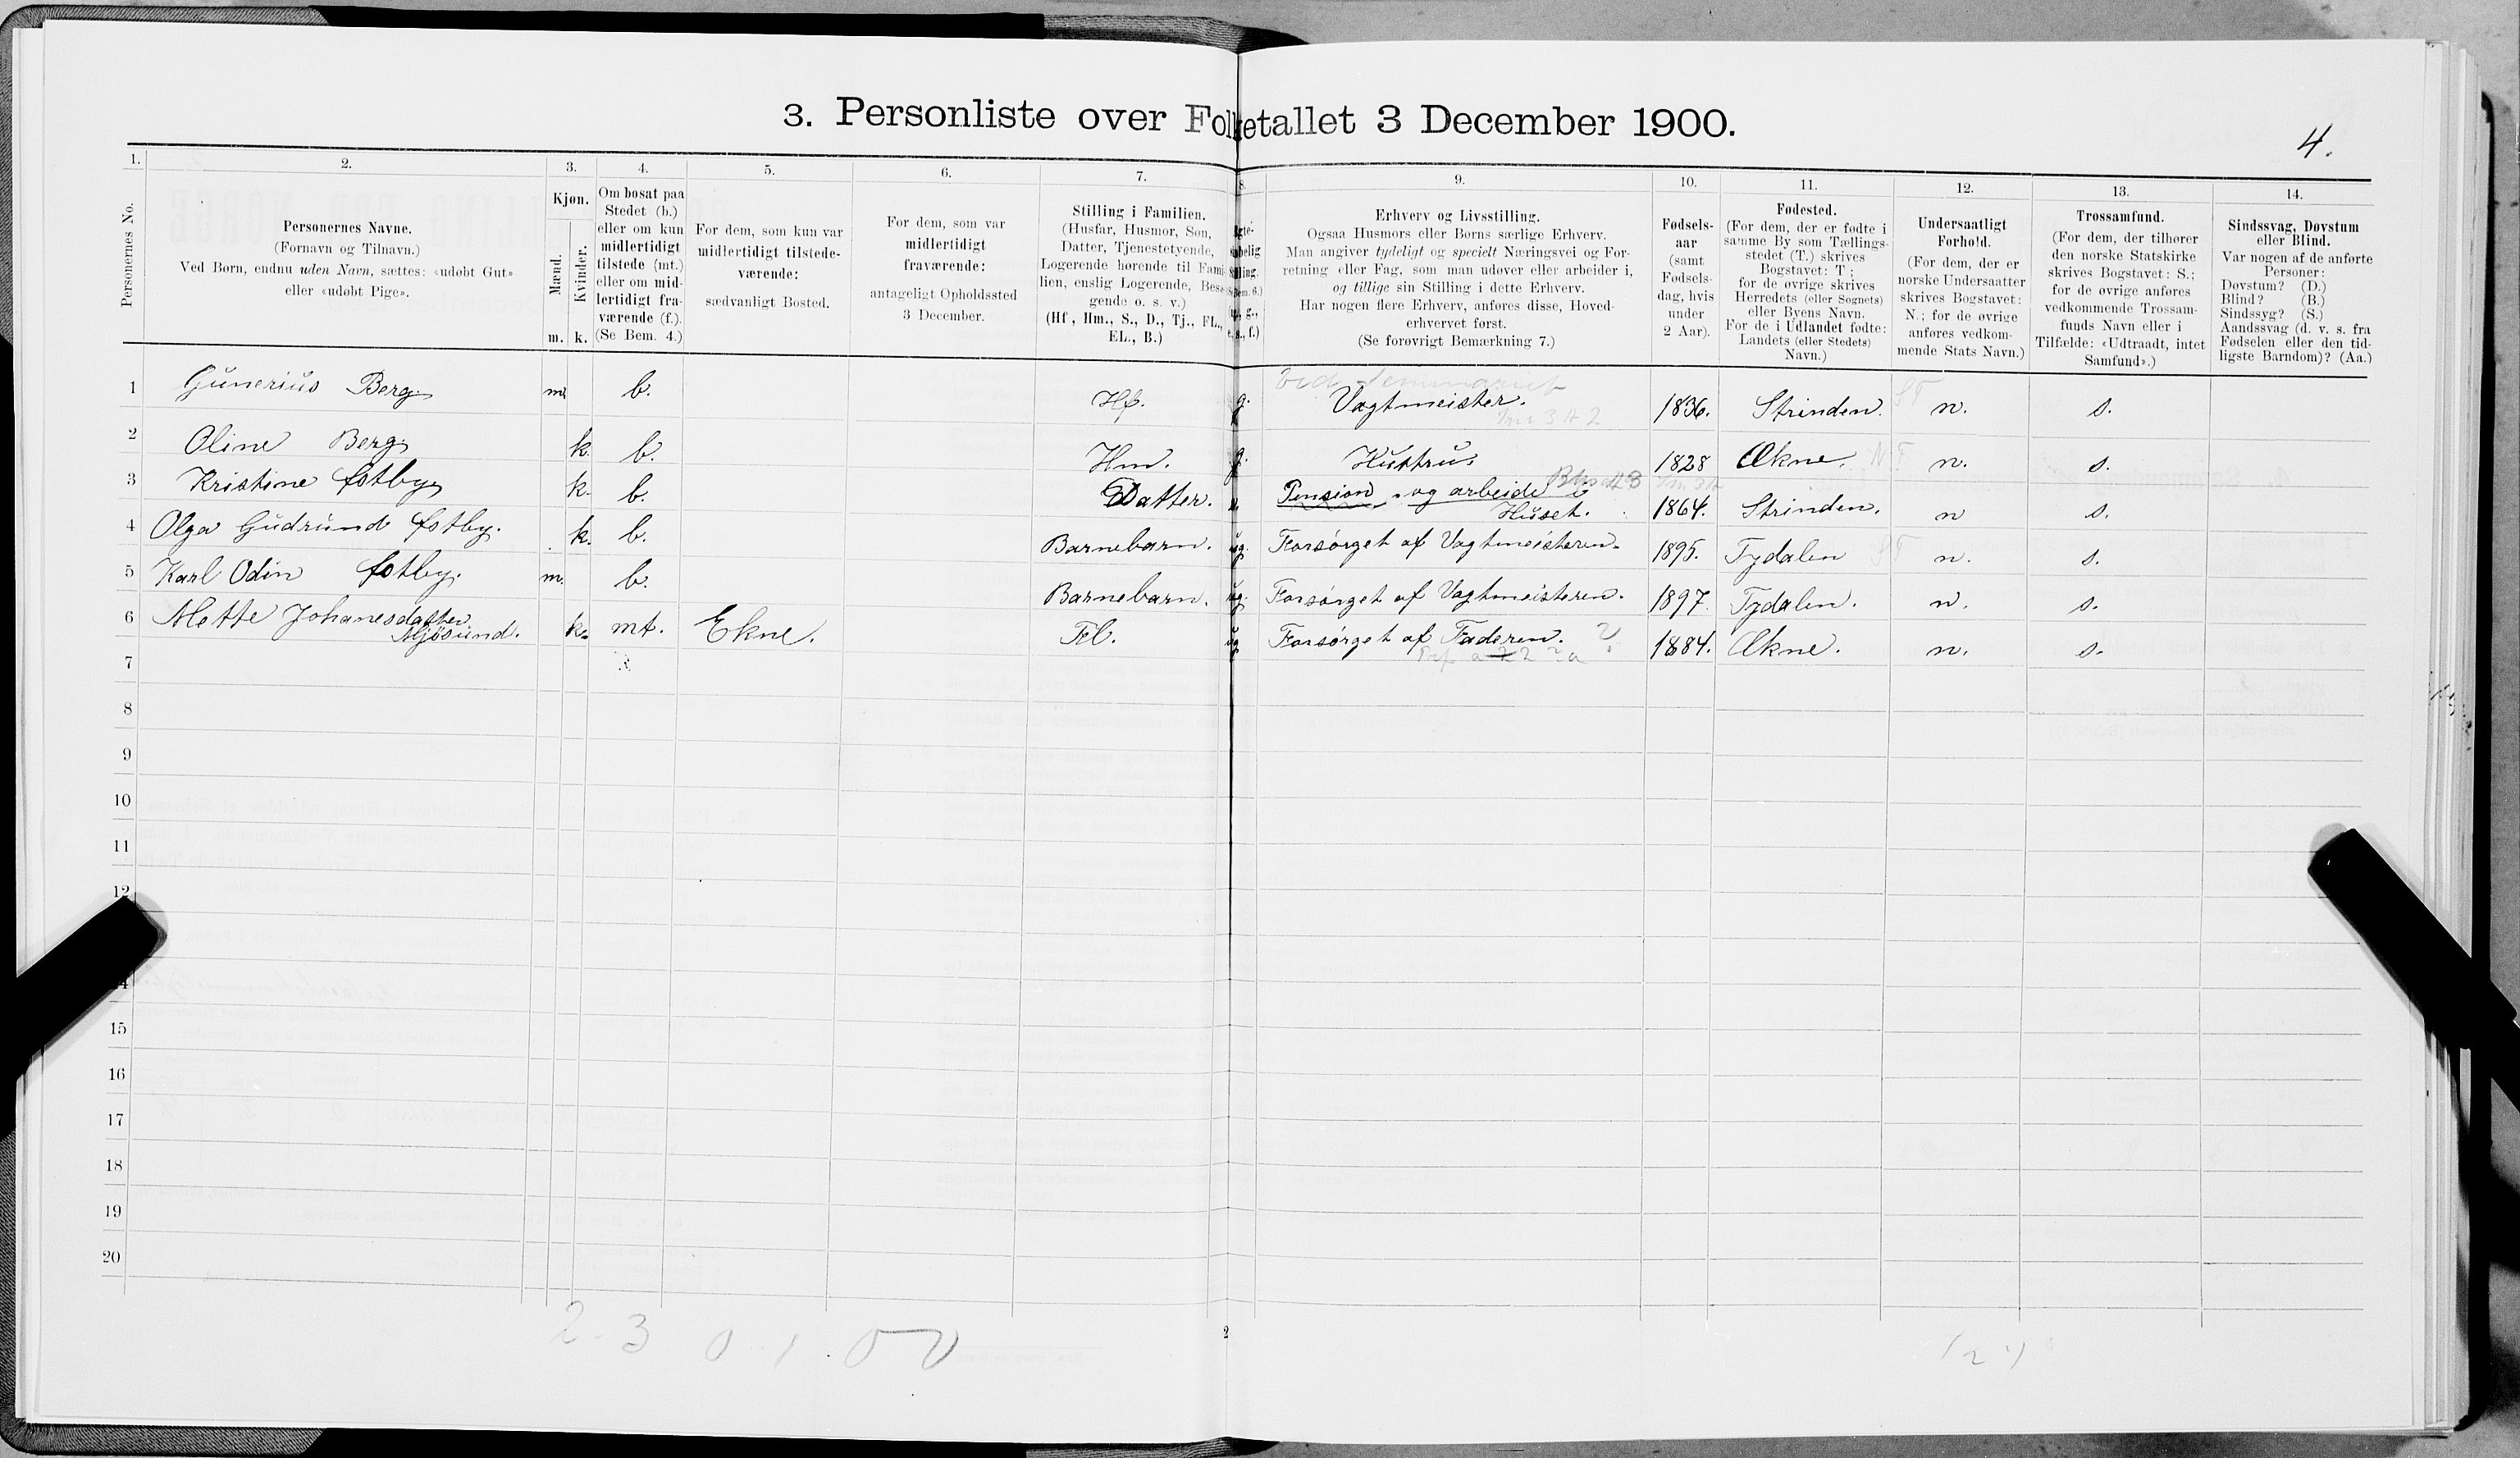 3. Personliste over Folketallet 3 December 1900.
4.
1.
2.
3.
4.
5.
6.
7.
8.
9.
10.
11.
12.
13.
14.
Personernes No.
Personernes Navne.
(Fornavn og Tilnavn.)
Ved Børn, endnu uden Navn, sættes: «udøbt Gut»
eller «udøbt Pige».
Kjøn.
Mænd.
Kvinder.
m. k.
Om bosat paa
Stedet (b.)
eller om kun
midlertidigt
tilstede (mt.)
eller om mid-
lertidigt fra-
værende (f.).
(Se Bem. 4.)
For dem, som kun var
midlertidigt tilstede-
værende:
sædvanligt Bosted.
For dem, som var
midlertidigt
fraværende:
antageligt Opholdssted
3 December.
Stilling i Familien.
(Husfar, Husmor, Søn,
Datter, Tjenestetyende,
Logerende hørende til Fami-
lien, enslig Logerende, Besø-
gende o. s. v.)
(Hf., Hm., S., D., Tj., FL.,
EL., B.)
Erhverv og Livsstilling.
Ogsaa Husmors eller Børns særlige Erhverv.
Man angiver tydeligt og specielt Næringsvei og For-
retning eller Fag, som man udøver eller arbeider i,
og tillige sin Stilling i dette Erhverv.
Har nogen flere Erhverv, anføres disse, Hoved-
erhvervet først.
(Se forøvrigt Bemærkning 7.)
Fødsels-
aar
(samt
Fødsels-
dag, hvis
under
2 Aar).
Fødested.
(For dem, der er fødte i
samme By som Tællings-
stedet (T.) skrives
Bogstavet: T;
for de øvrige skrives
Herredets (eller Sognets)
eller Byens Navn.
For de i Udlandet fødte:
Landets (eller Stedets)
Navn.)
Undersaatligt
Forhold.
(For dem, der er
norske Undersaatter
skrives Bogstavet:
N.; for de øvrige
anføres vedkom-
mende Stats Navn.)
Trossamfund.
(For dem, der tilhører
den norske Statskirke
skrives Bogstavet: S.;
for de øvrige anføres
vedkommende Trossam-
funds Navn eller i
Tilfælde: «Udtraadt, intet
Samfund».)
Sindssvag, Døvstum
eller Blind.
Var nogen af de anførte
Personer:
Døvstum? (D.)
Blind? (B.)
Sindssyg? (S.)
Aandssvag (d. v. s. fra
Fødselen eller den tid-
ligste Barndom)? (Aa.)
ved Seminariet
1 Gunerius Berg m. b. Hf. g. Vagtmeister. 1836. Strinden. n. s.
2 Oline Berg k. b. Hm. g. Hustru. 1828 Ekne. n. s.
3 Kristine Østby k. b. Datter. Pension og arbeide i Huset. 1864. Strinden. n s.
4 Olga Gudrund Østby. k. b. Barnebarn. ug. Forsørget af Vagtmeisteren. 1895. Tydalen n. s.
5 Karl Odin Østby. m. b. Barnebarn. ug. Forsørget af Vagtmeisteren. 1897. Tydalen. n. s.
6 Mette Johanesdatter Mjøsund. k. mt. Ekne. Fl. ug Forsørget af Faderen. 1884. Ekne. n. s.
7
8
9
10
11
12
15
16
17
18
19
20
2 - 3 0 . 1 . 0 0
2